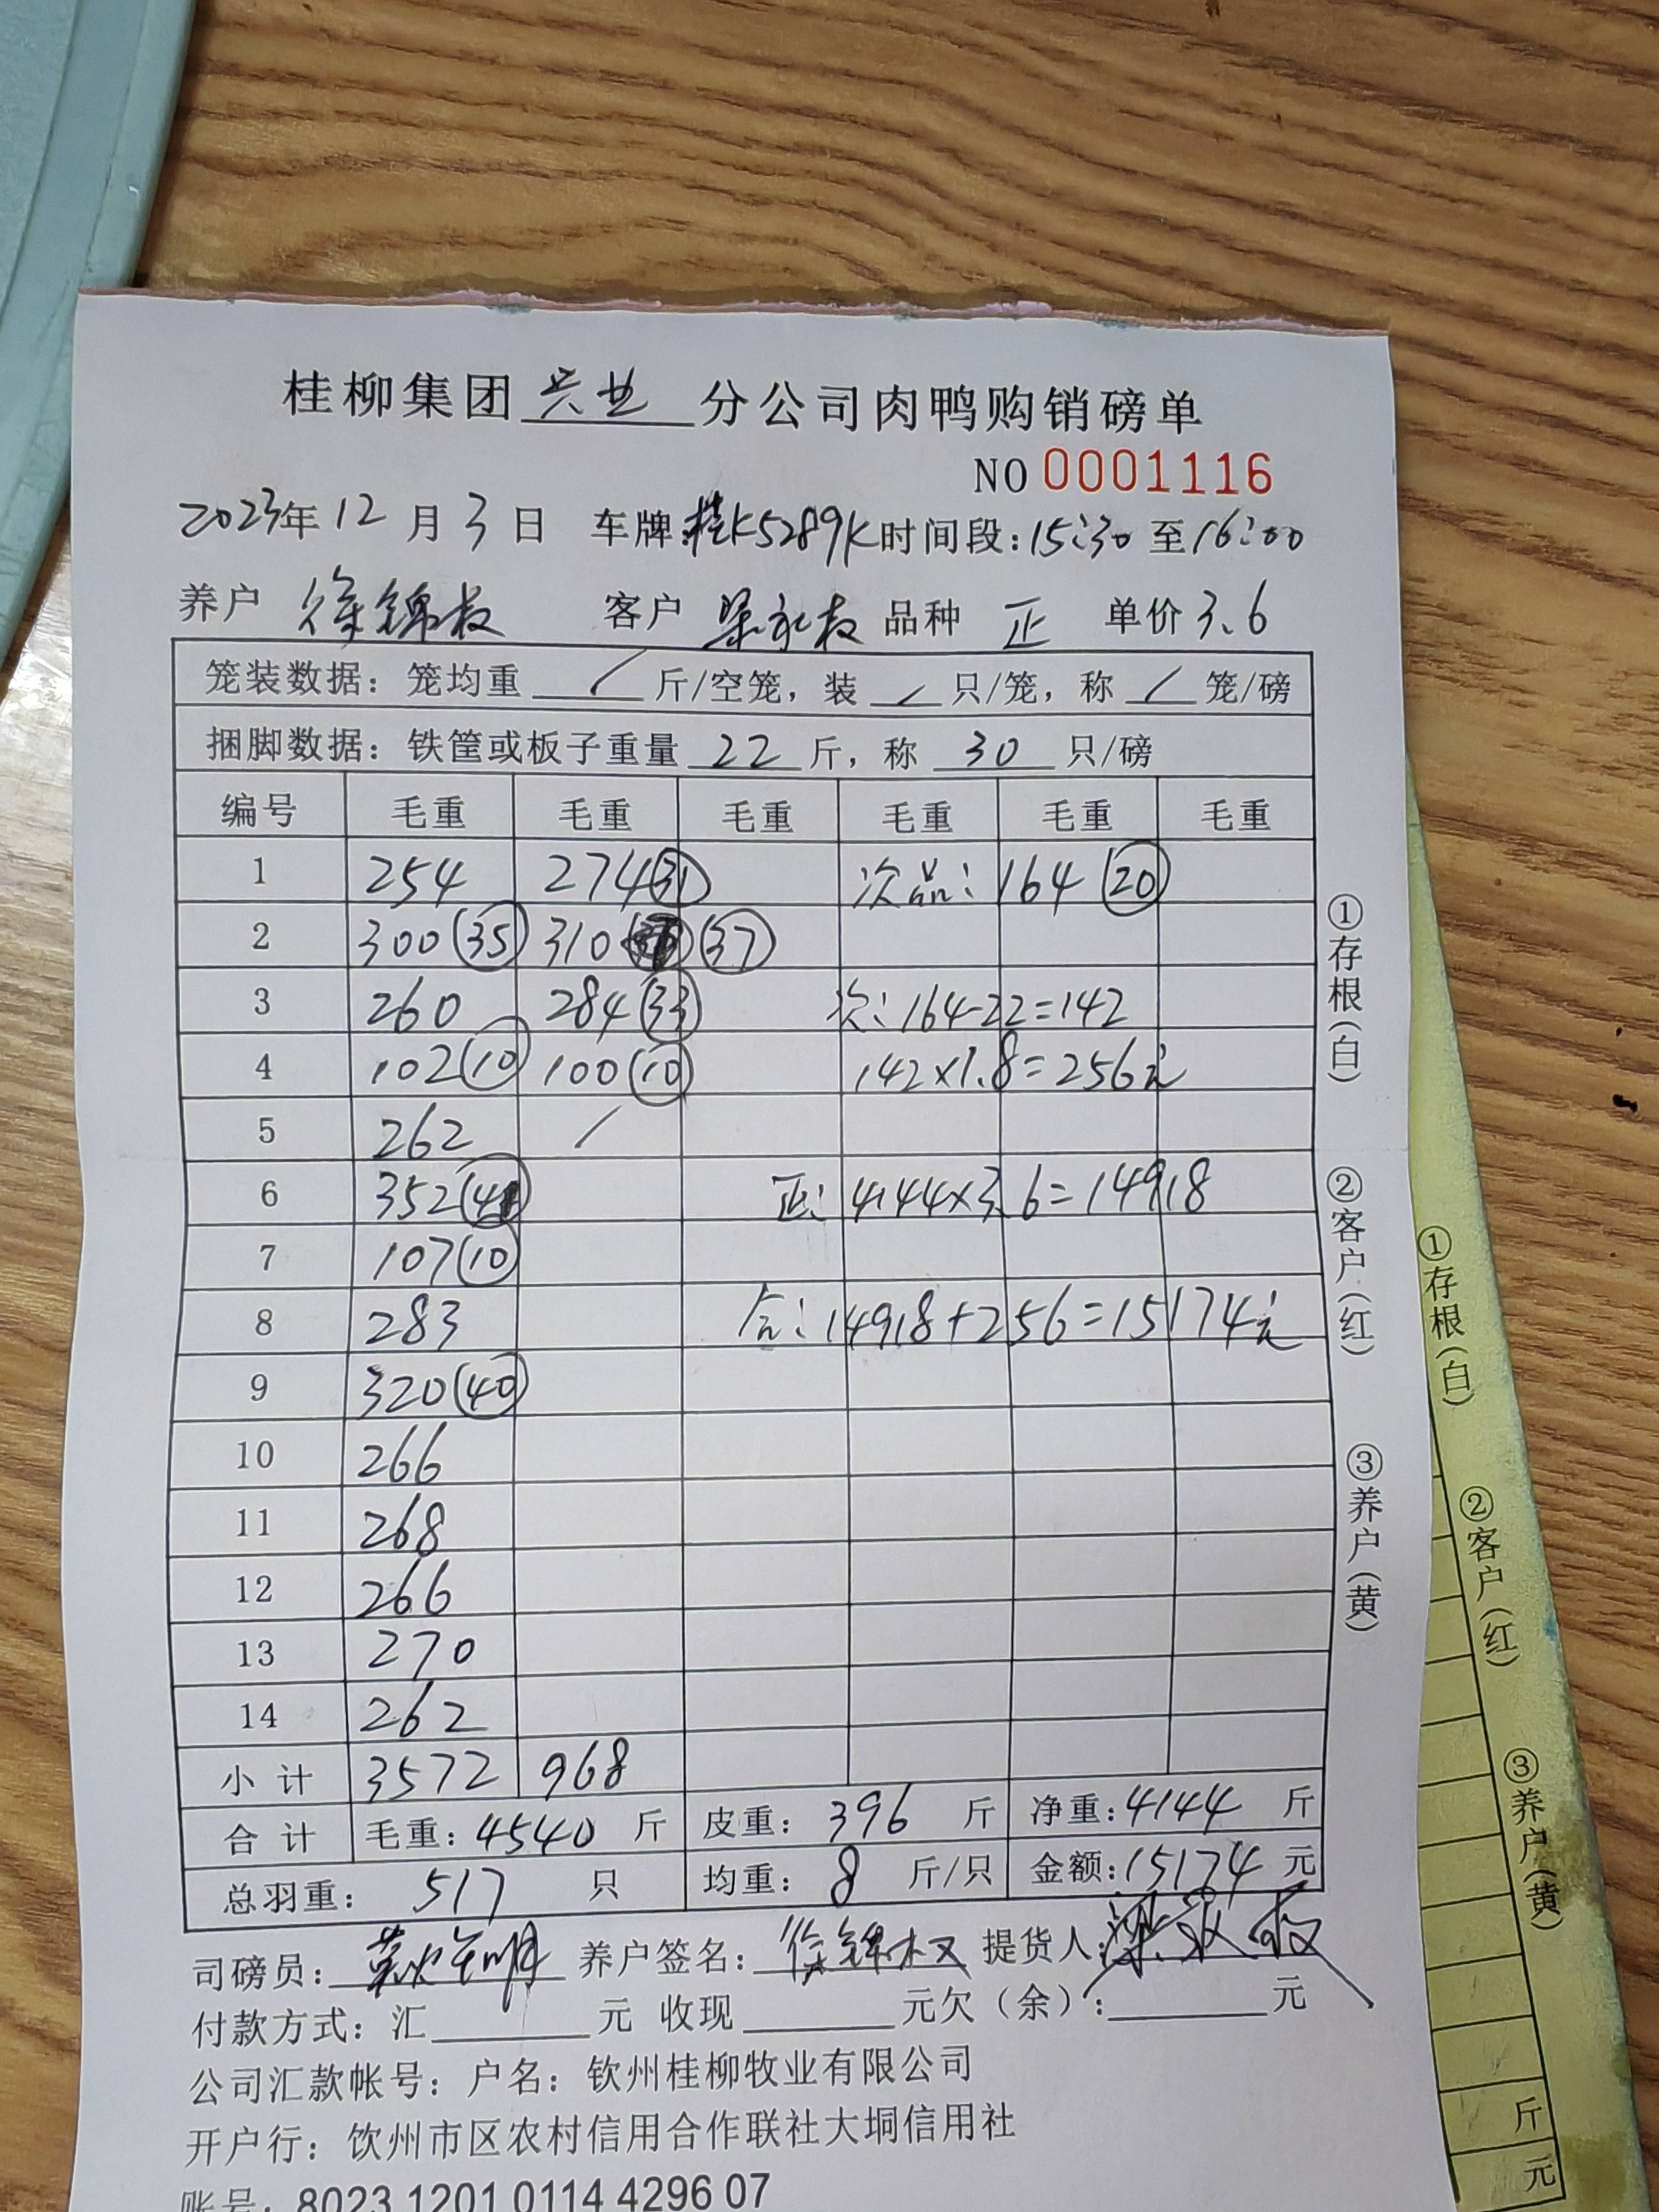 桂柳集团兴业分公司肉鸭购销磅单
NO 0001116
2023年12月3日 车牌:桂K5289K时间段:15:30至16:00
养户 徐锦权 客户 梁永权 品种 正 单价3.6
笼装数据：笼均重 / 斤/空笼，装 / 只/笼，称 / 笼/磅
捆脚数据：铁筐或板子重量 22 斤，称 30 只/磅
编号 毛重 毛重 毛重 毛重 毛重 毛重
1 254 274(31) 次品: 164(20)
2 300(35) 310 (37)
3 260 284(33) 次:164-22=142
4 102(10) 100(10) 142×1.8=256元
5 262 /
6 352(41) 正:4144×3.6=14918
7 107(10)
8 283 合:14918+256=15174元
9 320(40)
10 266
11 268
12 266
13 270
14 262
小计 3572 968
合计 毛重:4540 斤 皮重: 396 斤 净重:4144 斤
总羽重: 517 只 均重: 8 斤/只 金额:15174 元
司磅员: 养户签名: 徐锦权 提货人:梁永权
付款方式: 汇 元 收现 元欠（余）: 元
公司汇款帐号: 户名: 钦州桂柳牧业有限公司
开户行: 钦州市区农村信用合作联社大垌信用社
账号: 8023 1201 0114 4296 07
①存根(白)
②客户(红)
③养户(黄)
①存根(白)
②客户(红)
③养户(黄)
斤
元